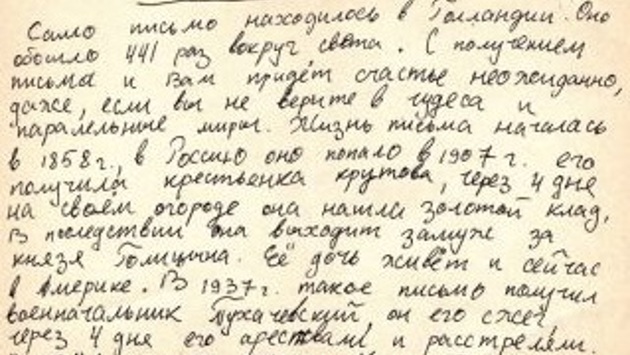 Само письмо находилось в Голландии. Оно
обошло 441 раз вокруг света. С получением
письма и Вам придёт счастье неожиданно,
даже, если вы не верите в чудеса и
паралельные миры. Жизнь письма началась
в 1858г., в Россию оно попало в 1907г. его
получила крестьенка крутова, через 4 дня
на своем огороде она нашла золотой клад,
в последствии она выходит замуж за
князя Голицына. Её дочь живёт и сейчас
в Америке. В 1937г. такое письмо получил
военначальник Тухачевский, он его сжег,
через 4 дня его арествали и расстреляли.